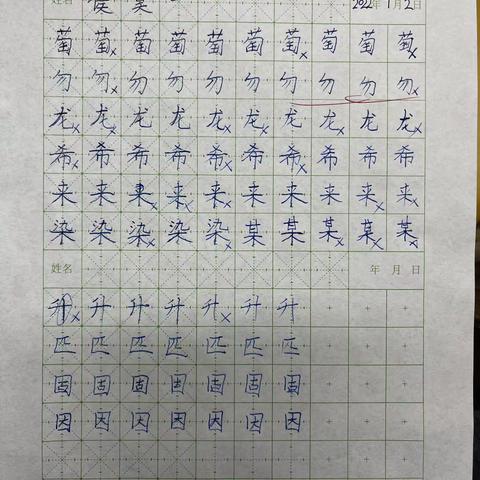 姓名 2022年1月2日
萄 萄 萄 萄 萄 萄 萄 萄 萄 萄
勿 勿 勿 勿 勿 勿 勿 勿 勿 勿
龙 龙 龙 龙 龙 龙 龙 龙 龙 龙
希 希 希 希 希 希 希 希 希 希
来 来 来 来 来 来 来 来 来 来
染 染 染 染 染 某 某 某 某 某
姓名 年 月 日
升 升 升 升 升 升 升
匹 匹 匹 匹 匹 匹 匹
固 固 固 固 固 固 固
因 因 因 因 因 因 因